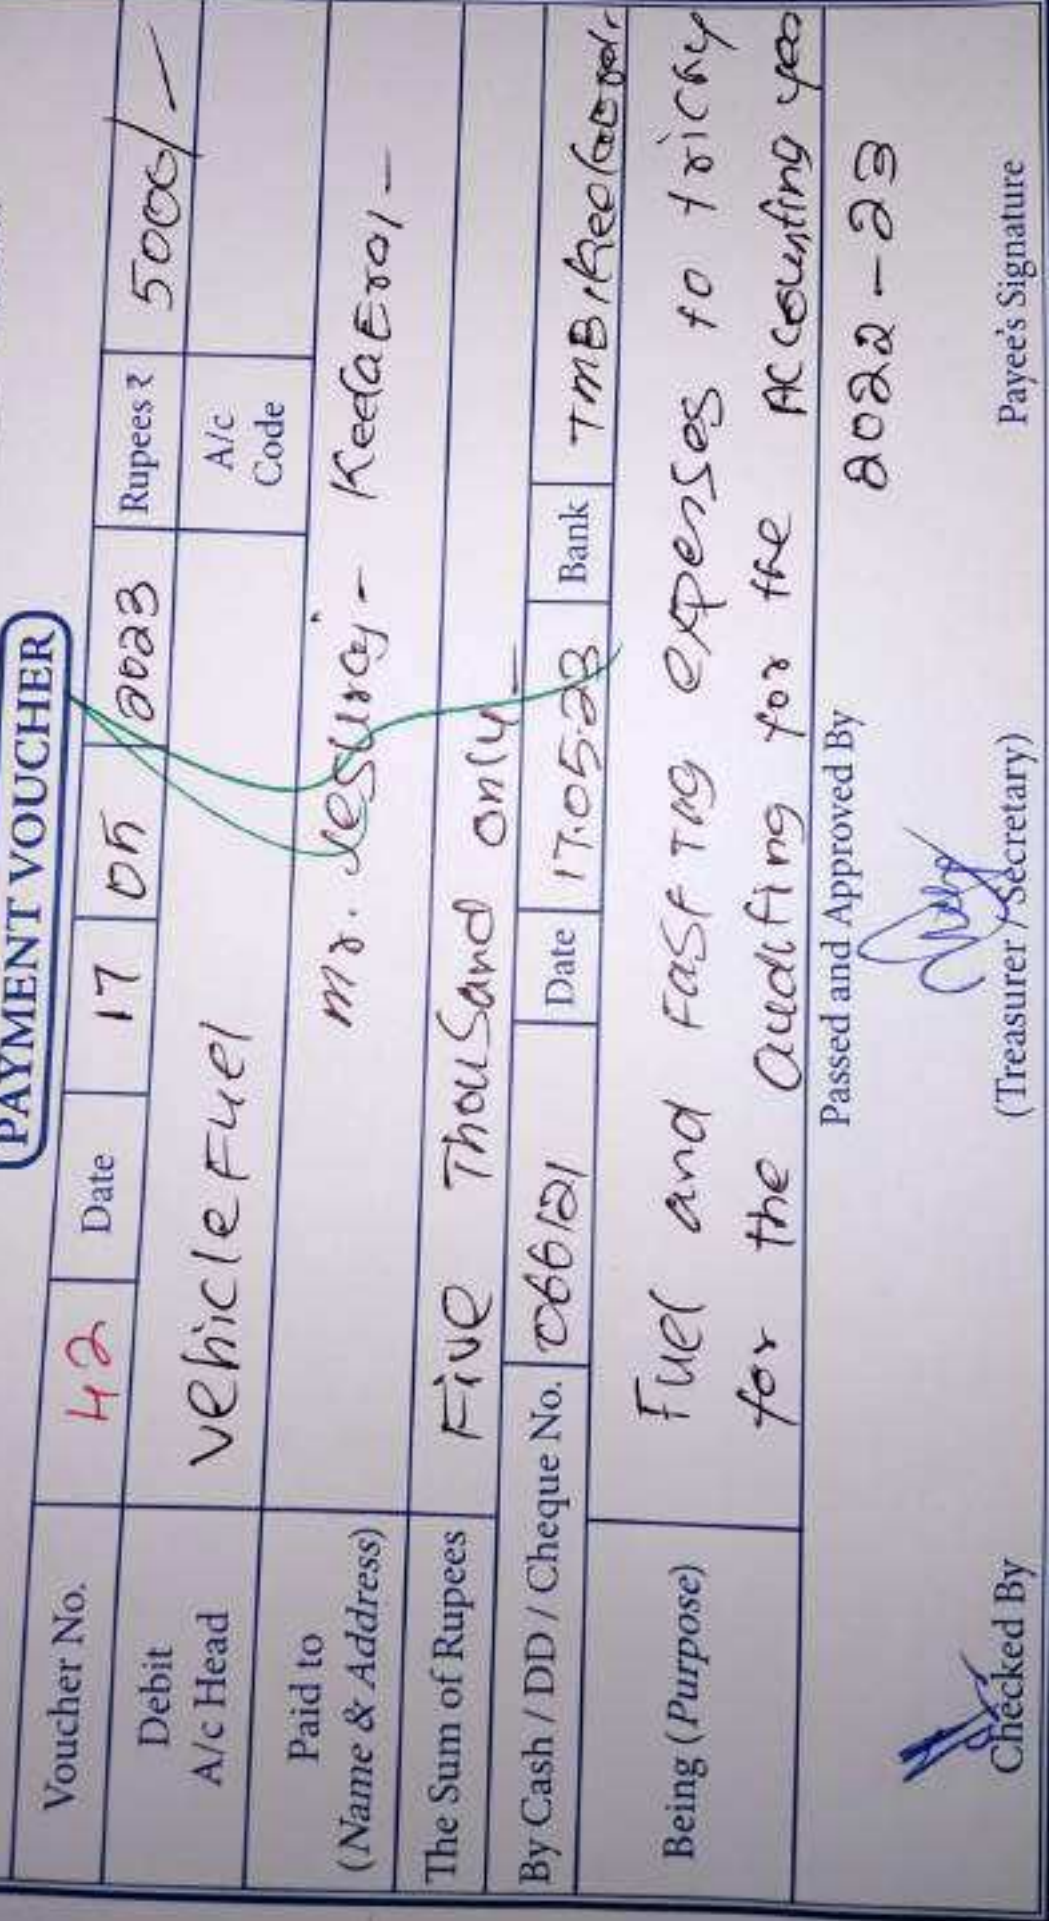 PAYMENT VOUCHER
Voucher No. 42 Date 17 05 2023 Rupees ₹ 5000/-
Debit A/c Head Vehicle Fuel A/c Code
Paid to (Name & Address) Mr. Jesuraj - Keela Eral -
The Sum of Rupees Five Thousand only -
By Cash / DD / Cheque No. 066121 Date 17.05.23 Bank TMB,
Being (Purpose) Fuel and Fast Tag expenses to trichy
for the auditing for the Accounting year
2022-23
Passed and Approved By
Checked By (Treasurer / Secretary) Payee's Signature